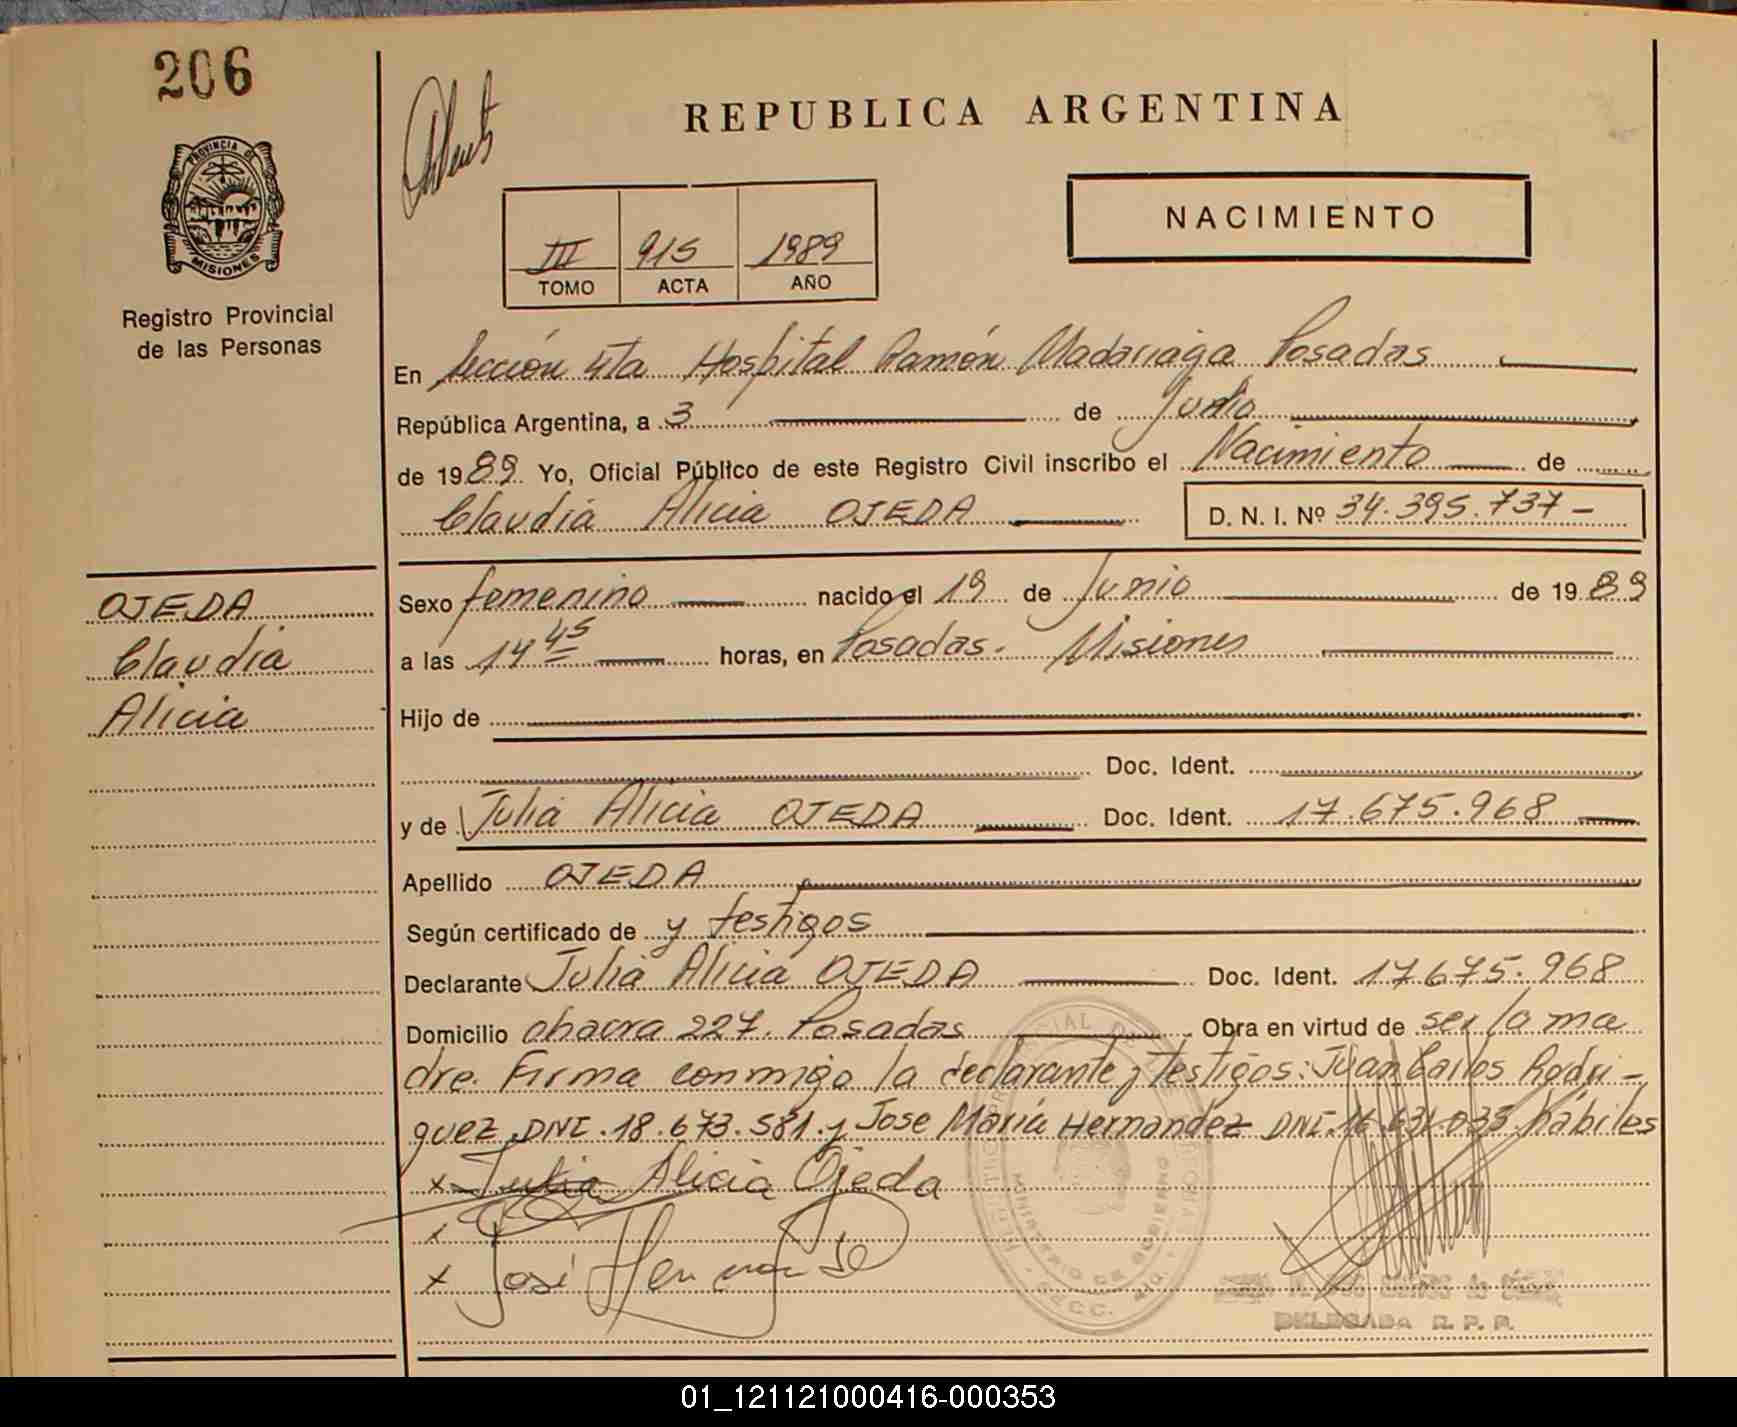 206
PROVINCIA DE
MISIONES
Registro Provincial
de las Personas
REPUBLICA ARGENTINA
NACIMIENTO
III 915 1989
TOMO ACTA AÑO
En Sección 4ta Hospital Ramón Madariaga Posadas
República Argentina, a 3 de Julio
de 1989 Yo, Oficial Público de este Registro Civil inscribo el Nacimiento de
Claudia Alicia OJEDA D. N. I. Nº 34.395.737-
OJEDA
Claudia
Alicia
Sexo femenino nacido el 19 de Junio de 1989
a las 14 45 horas, en Posadas. Misiones
Hijo de
Doc. Ident.
y de Julia Alicia OJEDA Doc. Ident. 17.675.968
Apellido OJEDA
Según certificado de y testigos
Declarante Julia Alicia OJEDA Doc. Ident. 17.675.968
Domicilio chacra 227. Posadas Obra en virtud de ser la ma
dre. Firma conmigo la declarante y testigos: Juan Carlos Rodri-
guez DNI.18.673.581.y Jose María Hernandez DNI.16.631.033 hábiles
x Julia Alicia Ojeda
x
x José Hernande
MINISTERIO DE GOBIERNO
DELEGADA R. P. P.
01_121121000416-000353